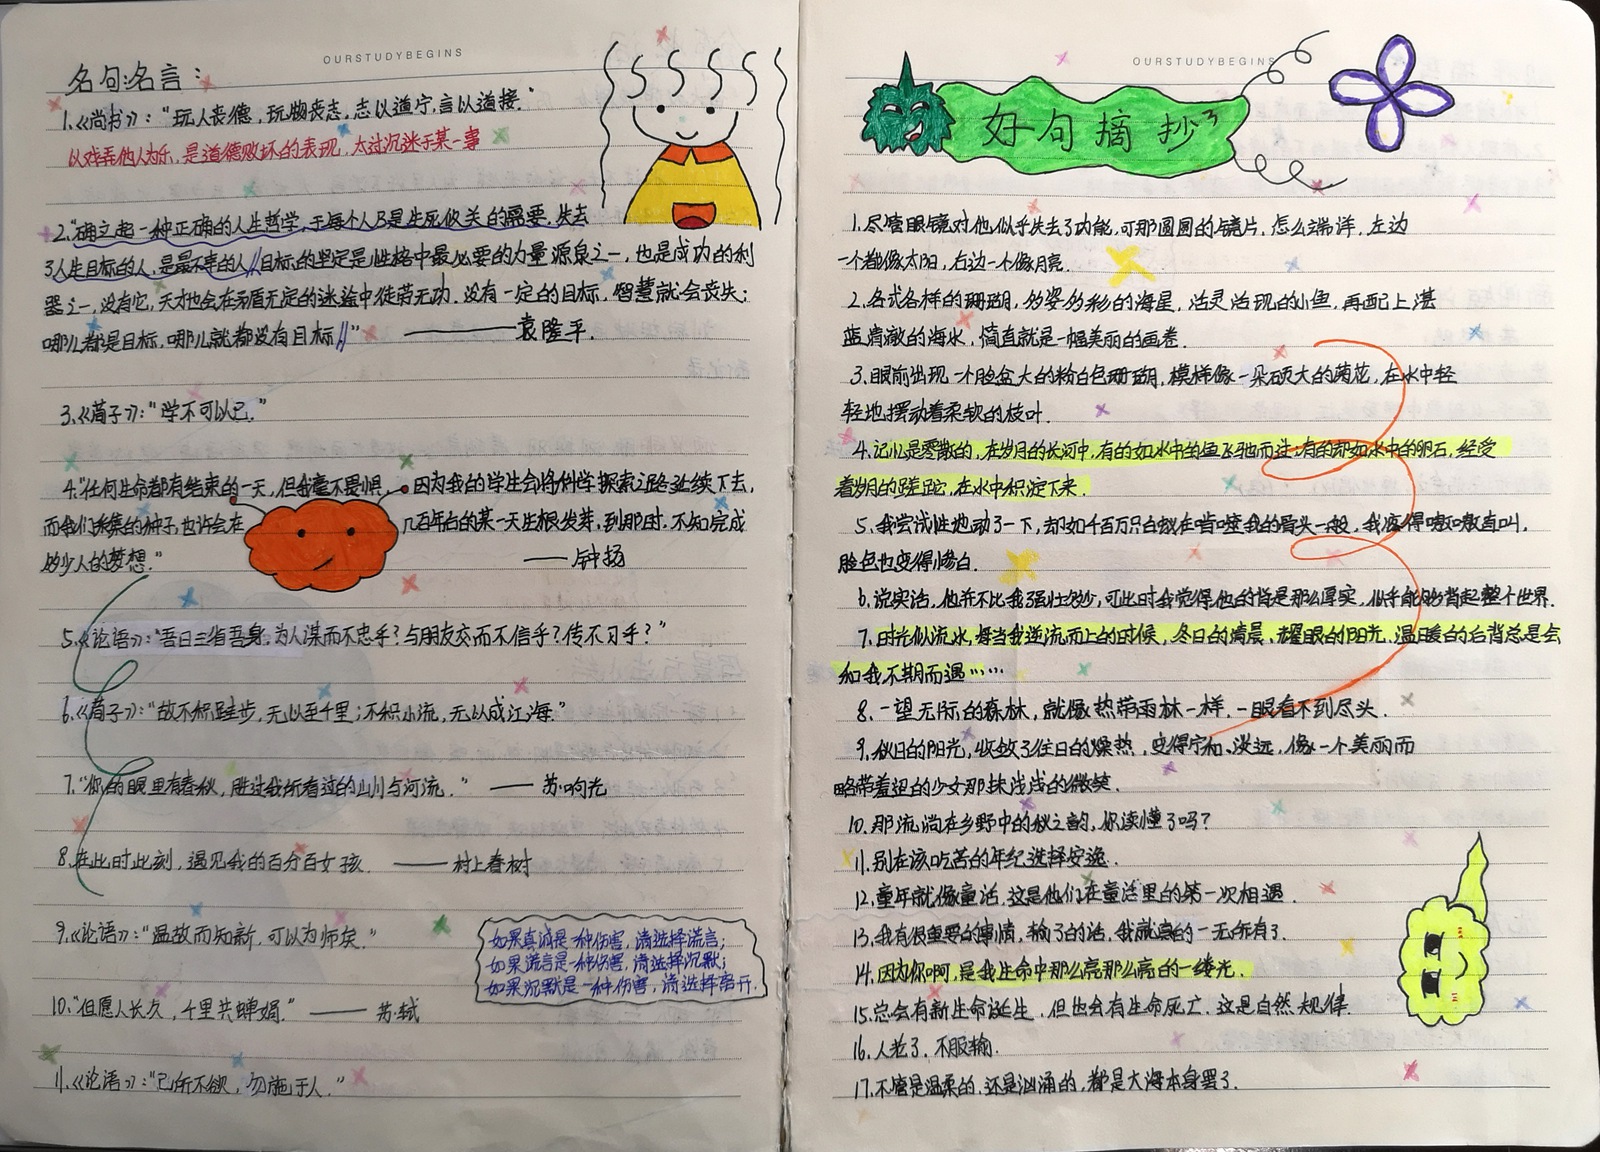 OURSTUDYBEGINS
名句名言：
1.《尚书》："玩人丧德，玩物丧志，志以道宁，言以道接."
以戏弄他人为乐，是道德败坏的表现，太过沉迷于某一事
2."确立起一种正确的人生哲学，于每个人乃是生死攸关的需要，失去
了人生目标的人，是最不幸的人//目标的坚定是性格中最必要的力量源泉之一，也是成功的利
器之一，没有它，天才也会在矛盾无定的迷途中徒劳无功，没有一定的目标，智慧就会丧失；
哪儿都是目标，哪儿就都没有目标//" ——袁隆平.
3.《荀子》："学不可以已."
4."任何生命都有结束的一天，但我毫不畏惧，因为我的学生会将科学探索之路延续下去，
而我们采集的种子，也许会在几百年后的某一天生根发芽，到那时，不知完成
多少人的梦想." ——钟扬
5.《论语》："吾日三省吾身，为人谋而不忠乎？与朋友交而不信乎？传不习乎？"
6.《荀子》："故不积跬步，无以至千里；不积小流，无以成江海."
7."你的眼里有春秋，胜过我所看过的山川与河流." ——苏响光
8.在此时此刻，遇见我的百分百女孩. ——村上春树
9.《论语》："温故而知新，可以为师矣."
如果真诚是一种伤害，请选择谎言；
如果谎言是一种伤害，请选择沉默；
如果沉默是一种伤害，请选择离开.
10."但愿人长久，千里共婵娟." ——苏轼
11.《论语》："己所不欲，勿施于人."
OURSTUDYBEGINS
好句摘抄
1.尽管眼镜对他似乎失去了功能，可那圆圆的镜片，怎么端详，左边
一个都像太阳，右边一个像月亮.
2.各式各样的珊瑚，多姿多彩的海星，活灵活现的小鱼，再配上湛
蓝清澈的海水，简直就是一幅美丽的画卷.
3.眼前出现一个脸盆大的粉白色珊瑚，模样像一朵硕大的菊花，在水中轻
轻地摆动着柔软的枝叶.
4.记忆是零散的，在岁月的长河中，有的如水中的鱼飞驰而过；有的却如水中的卵石，经受
着岁月的蹉跎，在水中积淀下来.
5.我尝试性地动了一下，却如千百万只白蚁在啃噬我的骨头一般，我疼得嗷嗷直叫，
脸色也变得惨白.
6.说实话，他并不比我强壮多少，可此时我觉得他的背是那么厚实，似乎能够背起整个世界.
7.时光似流水，每当我逆流而上的时候，冬日的清晨、耀眼的阳光、温暖的后背总是会
和我不期而遇……
8.一望无际的森林，就像热带雨林一样，一眼看不到尽头.
9.秋日的阳光，收敛了往日的燥热，变得宁和、淡远，像一个美丽而
略带羞涩的少女那抹浅浅的微笑.
10.那流淌在乡野中的秋之韵，你读懂了吗？
11.别在该吃苦的年纪选择安逸.
12.童年就像童话，这是他们在童话里的第一次相遇.
13.我有很重要的事情，输了的话，我就真的一无所有了.
14.因为你啊，是我生命中那么亮那么亮的一缕光.
15.总会有新生命诞生，但也会有生命死亡，这是自然规律.
16.人老了，不服输.
17.不管是温柔的，还是汹涌的，都是大海本身罢了.